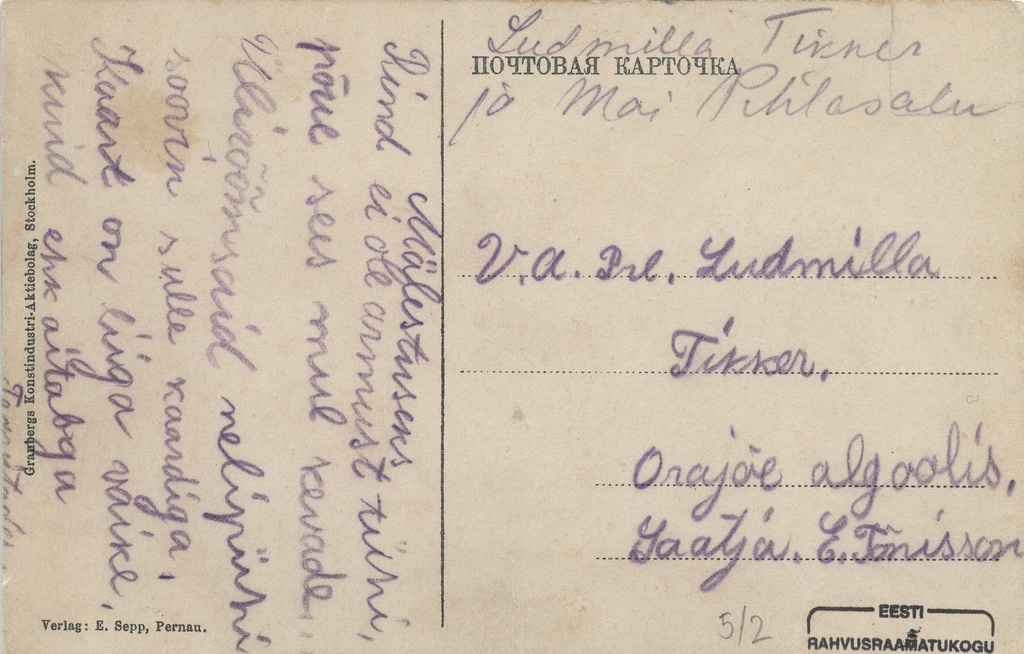 Mälestuseks
Rind ei ole armust tühi,
põue sees mul kevade.
Üliröõmsaid nelipühi
soovin sulle kaardiga,
Kaart on liiga väike,
kuid ehk aitabga
Granbergs Konstindustri-Aktiebolag, Stockholm.
Verlag: E. Sepp, Pernau.
Ludmilla Tikker
ПОЧТОВАЯ КАРТОЧКА
ja Mai Pihlasalu
V.A. Prl. Ludmilla
Tikker.
Orajõe algoolis,
Saatja. E. Tõnisson
5/2
EESTI
RAHVUSRAAMATUKOGU